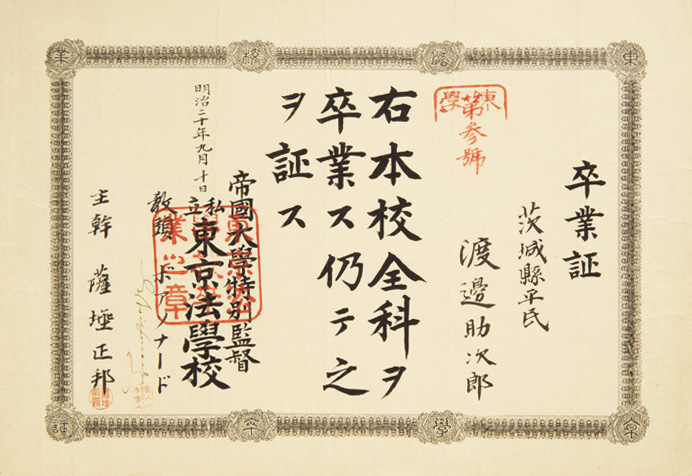 東京法學校卒業証
卒業証
茨城縣平民
渡邊助次郎
第参號
右本校全科ヲ
卒業ス仍テ之
ヲ証ス
明治二十年九月十日
帝國大學特別監督
私立東京法學校
教頭 ボアソナード
主幹 薩埵正邦